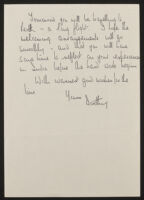 Tomorrow you will be travelling to
Perth – a long flight. I hope the
welcoming arrangements will go
smoothly – and that you will have
some time to reflect on your experiences
in before the new work begins
With warmest good wishes for the
time
Yours